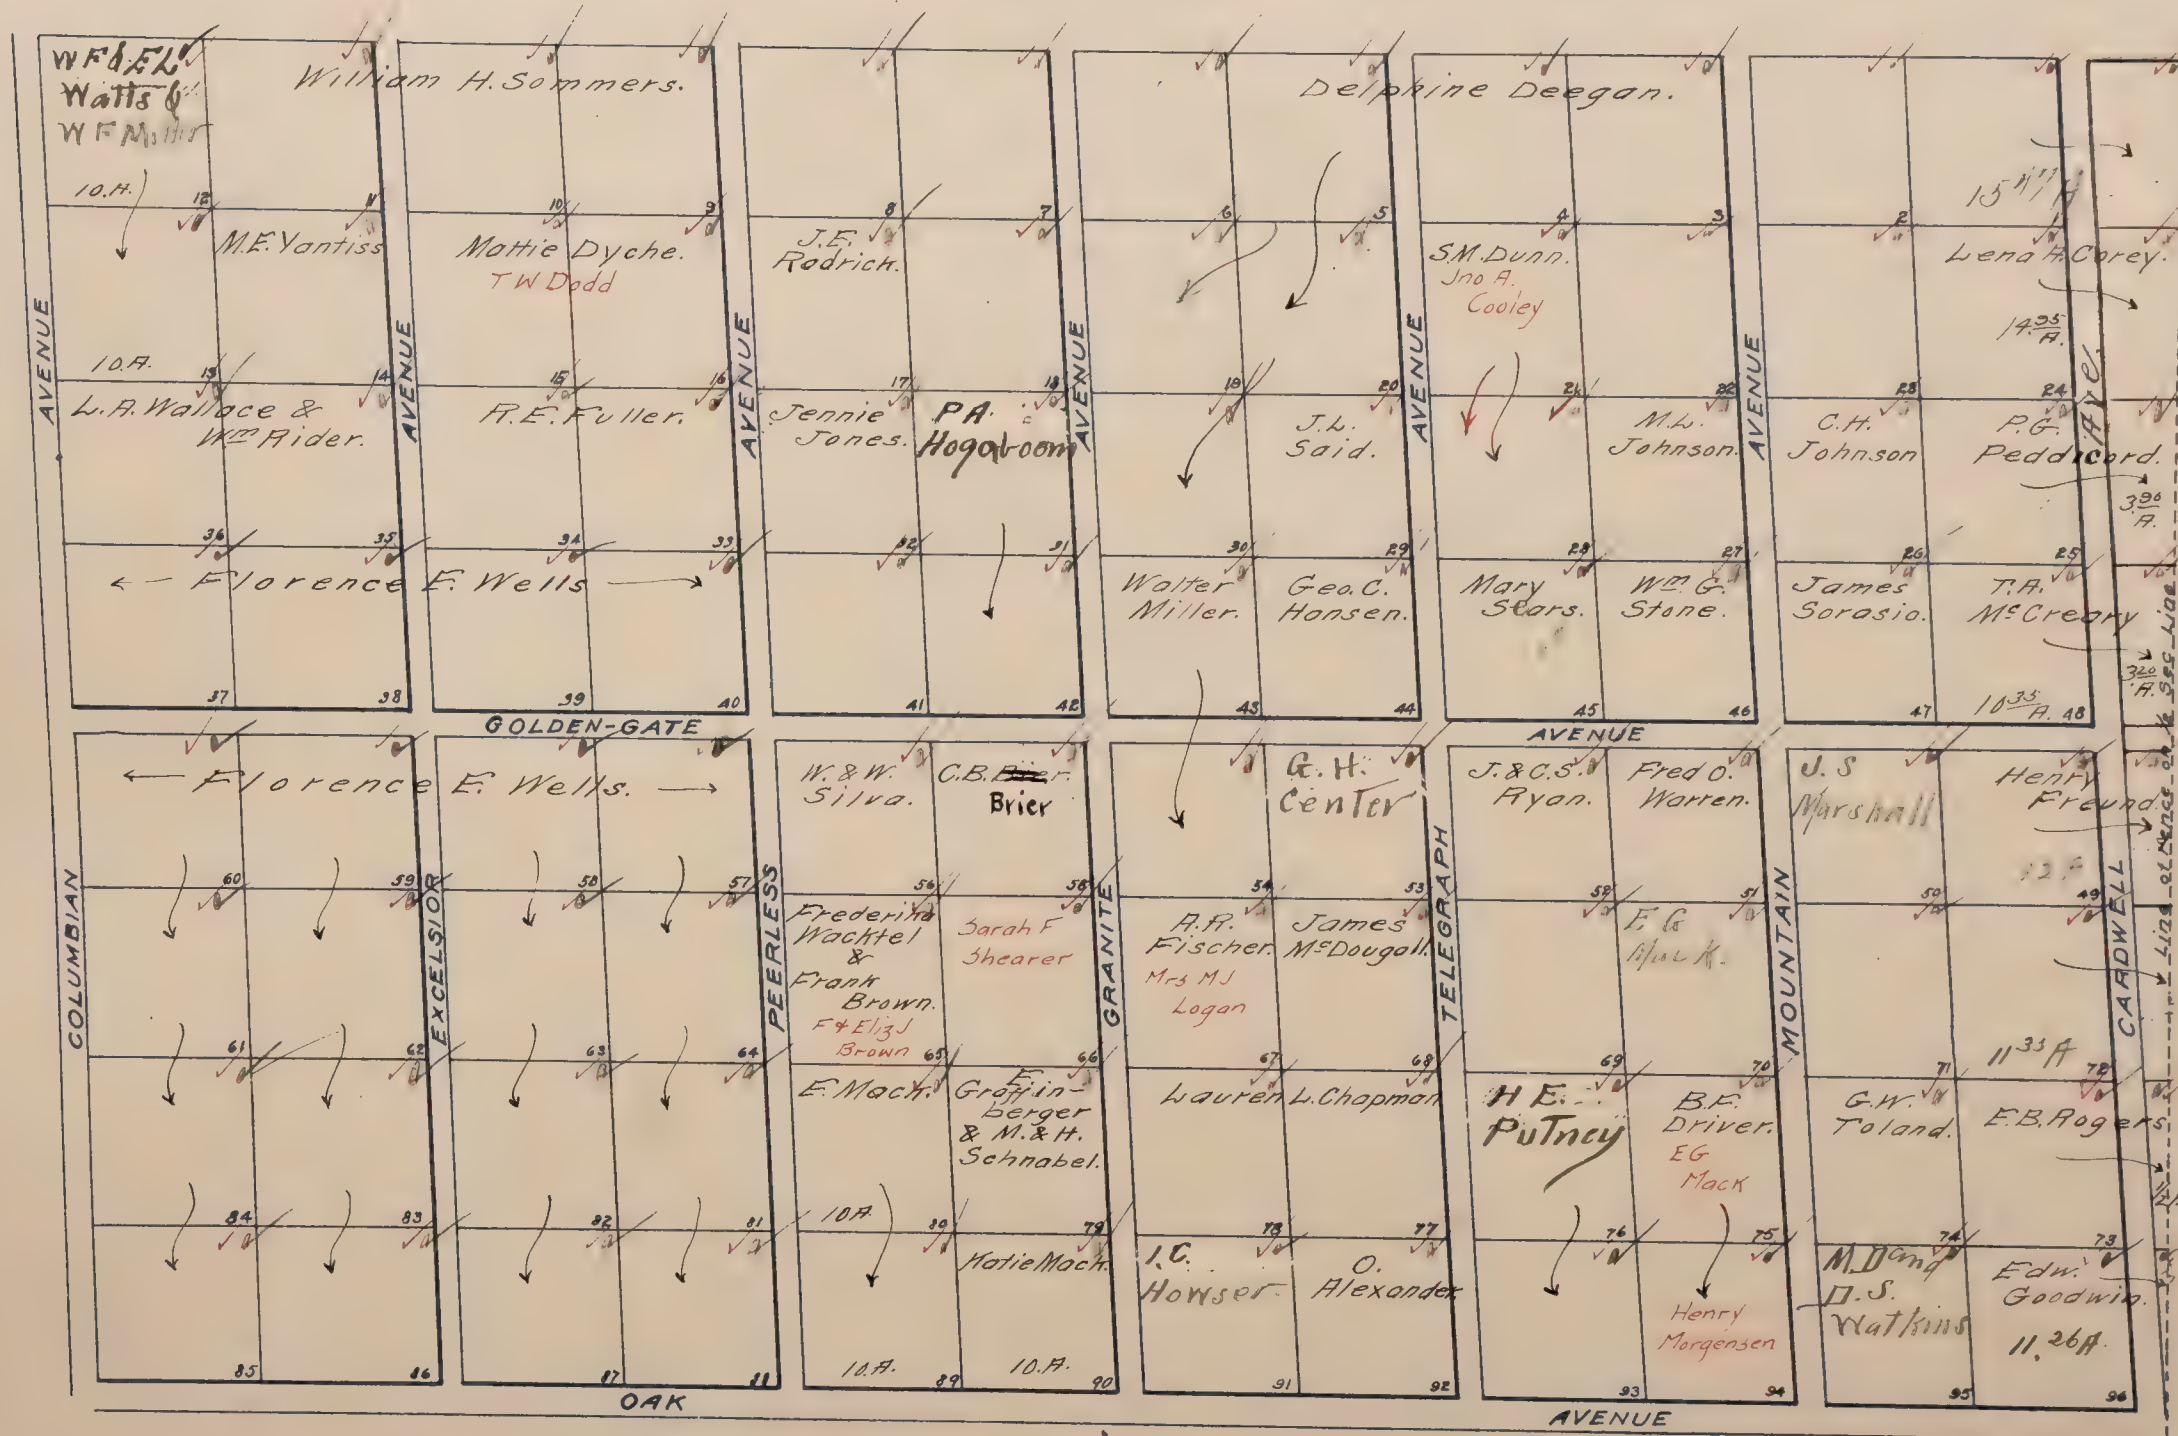 WF & EL
Watts &
WF Miller
William H. Sommers.
Delphine Deegan.
10.A.
12
11
10
9
8
7
6
5
4
3
2
1
15
M.E. Yantiss
Mattie Dyche.
TW Dodd
J.E.
Rodrick.
S.M. Dunn.
Jno A.
Cooley
Lena A. Corey.
14.95 A.
AVENUE
AVENUE
AVENUE
AVENUE
AVENUE
AVENUE
Ave.
10.A.
13
14
15
16
17
18
19
20
21
22
23
24
L.A. Wallace &
Wm Rider.
R.E. Fuller.
Jennie
Jones.
P A
Hogaboom
J.L.
Said.
M.L.
Johnson.
C.H.
Johnson
P.G.
Peddicord.
3.90 A.
36
35
34
33
32
31
30
29
28
27
26
25
← Florence E. Wells →
Walter
Miller.
Geo. C.
Hansen.
Mary
Sears.
Wm G.
Stone.
James
Sorasio.
T.A.
McCreary
3.20 A.
37
38
39
40
41
42
43
44
45
46
47
10.35 A.
48
GOLDEN-GATE
AVENUE
← Florence E. Wells. →
W. & W.
Silva.
C.B. Brier.
Brier
G. H.
Center
J. & C.S.
Ryan.
Fred O.
Warren.
J. S
Marshall
Henry
Freund.
60
59
58
57
56
55
54
53
52
51
50
49
COLUMBIAN
EXCELSIOR
PEERLESS
GRANITE
TELEGRAPH
MOUNTAIN
CARDWELL
Line of Fence on ¼ Sec Line
Frederika
Wacktel
&
Frank
Brown.
F & Eliz J
Brown
Sarah F
Shearer
A.R.
Fischer.
Mrs MJ
Logan
James
McDougall.
E G
Mack.
61
62
63
64
65
66
67
68
69
70
71
11.35 A
72
E. Mack.
E.
Graffin-
berger
& M. & H.
Schnabel.
Lauren L. Chapman
H E.
Putney
B.F.
Driver.
EG
Mack
G.W.
Toland.
E.B. Rogers.
84
83
82
81
10A.
80
79
78
77
76
75
74
73
Katie Mack.
I.C.
Howser.
O.
Alexander
Henry
Morgensen
M.D and
D.S.
Watkins
Edw.
Goodwin.
11.26A.
85
86
87
88
10.A.
89
10.A.
90
91
92
93
94
95
96
OAK
AVENUE